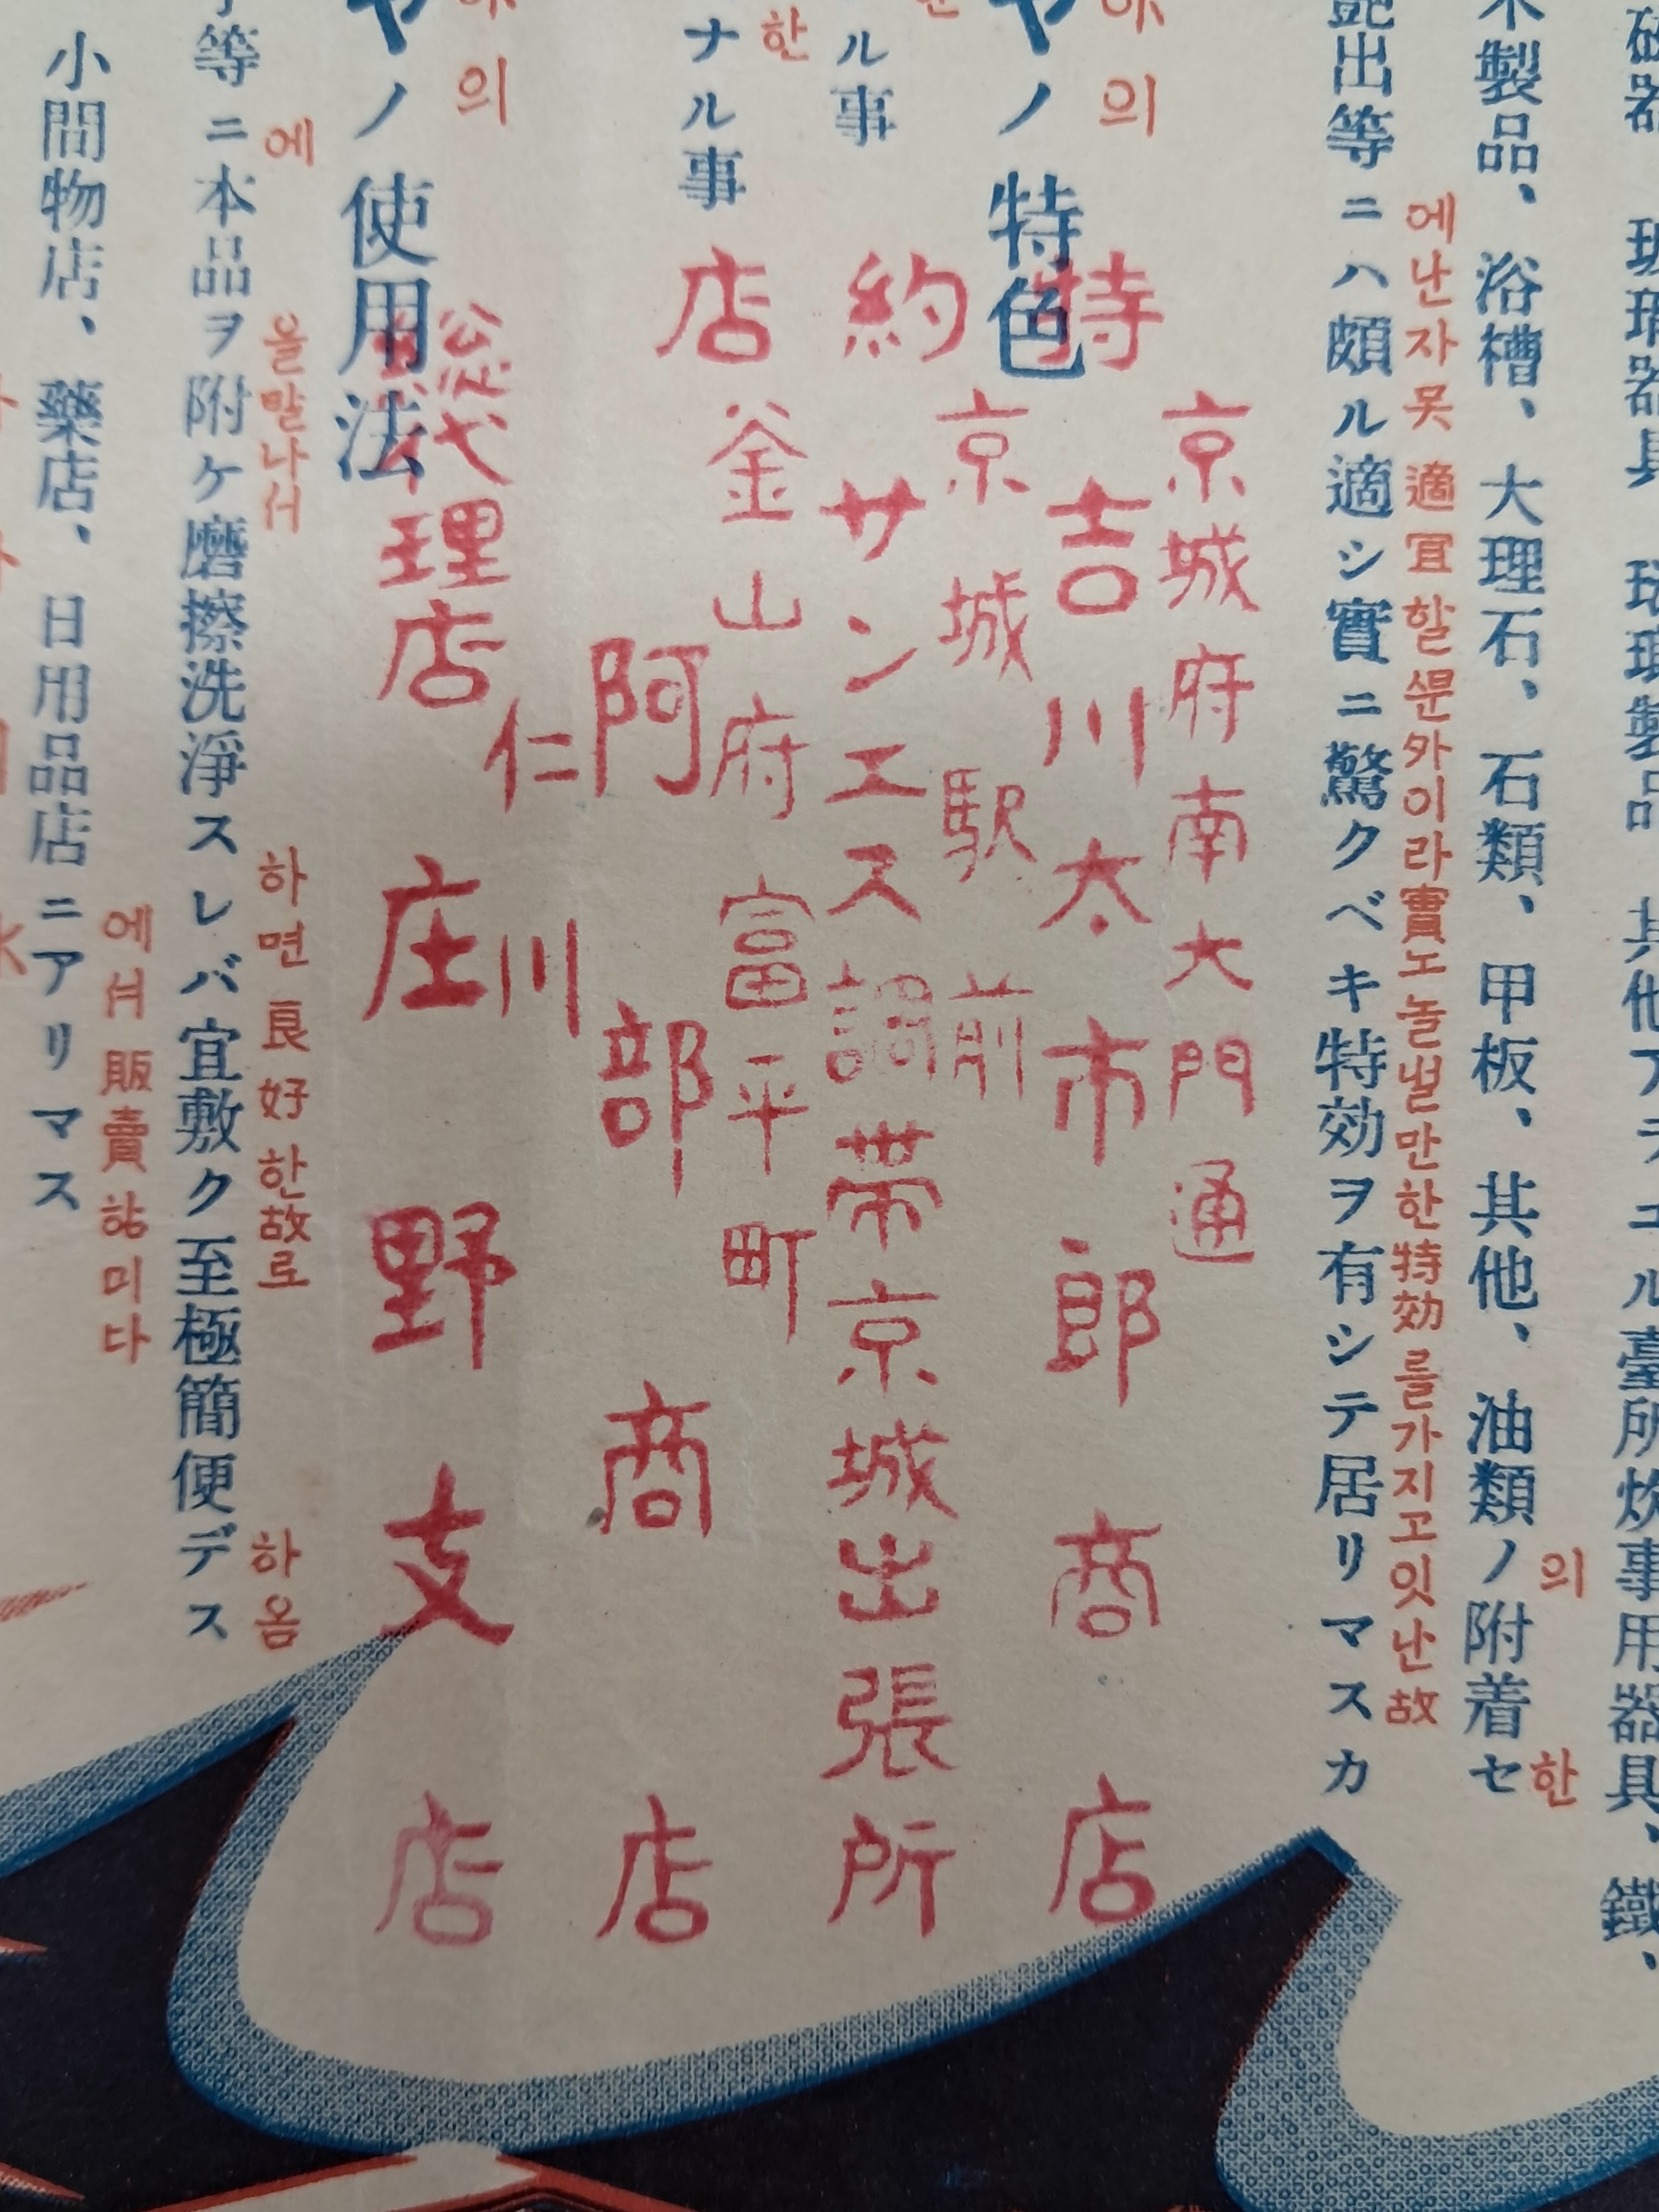 磁器
玻璃器具
其他アラユル臺所炊事用器具、鐵、
木製品、浴槽、大理石、石類、甲板、其他、油類ノ附着セ
의
한
艶出等ニハ頗ル適シ實ニ驚クベキ特効ヲ有シテ居リマスカ
에난자못適宜할뿐外이라實노놀낼만한特効를가지고잇난故
ヤノ特色
의
ル事
ナル事
한
特約店
京城府南大門通
吉川太市郎商店
京城駅前
サンエス調帯京城出張所
釜山府富平町
阿部商店
総代理店
仁川
庄野支店
ヤノ使用法
의
等ニ本品ヲ附ケ磨擦洗淨スレバ宜敷ク至極簡便デス
에
을말나셔
하면良好한故로
하옴
小間物店、藥店、日用品店ニアリマス
에셔販賣함미다